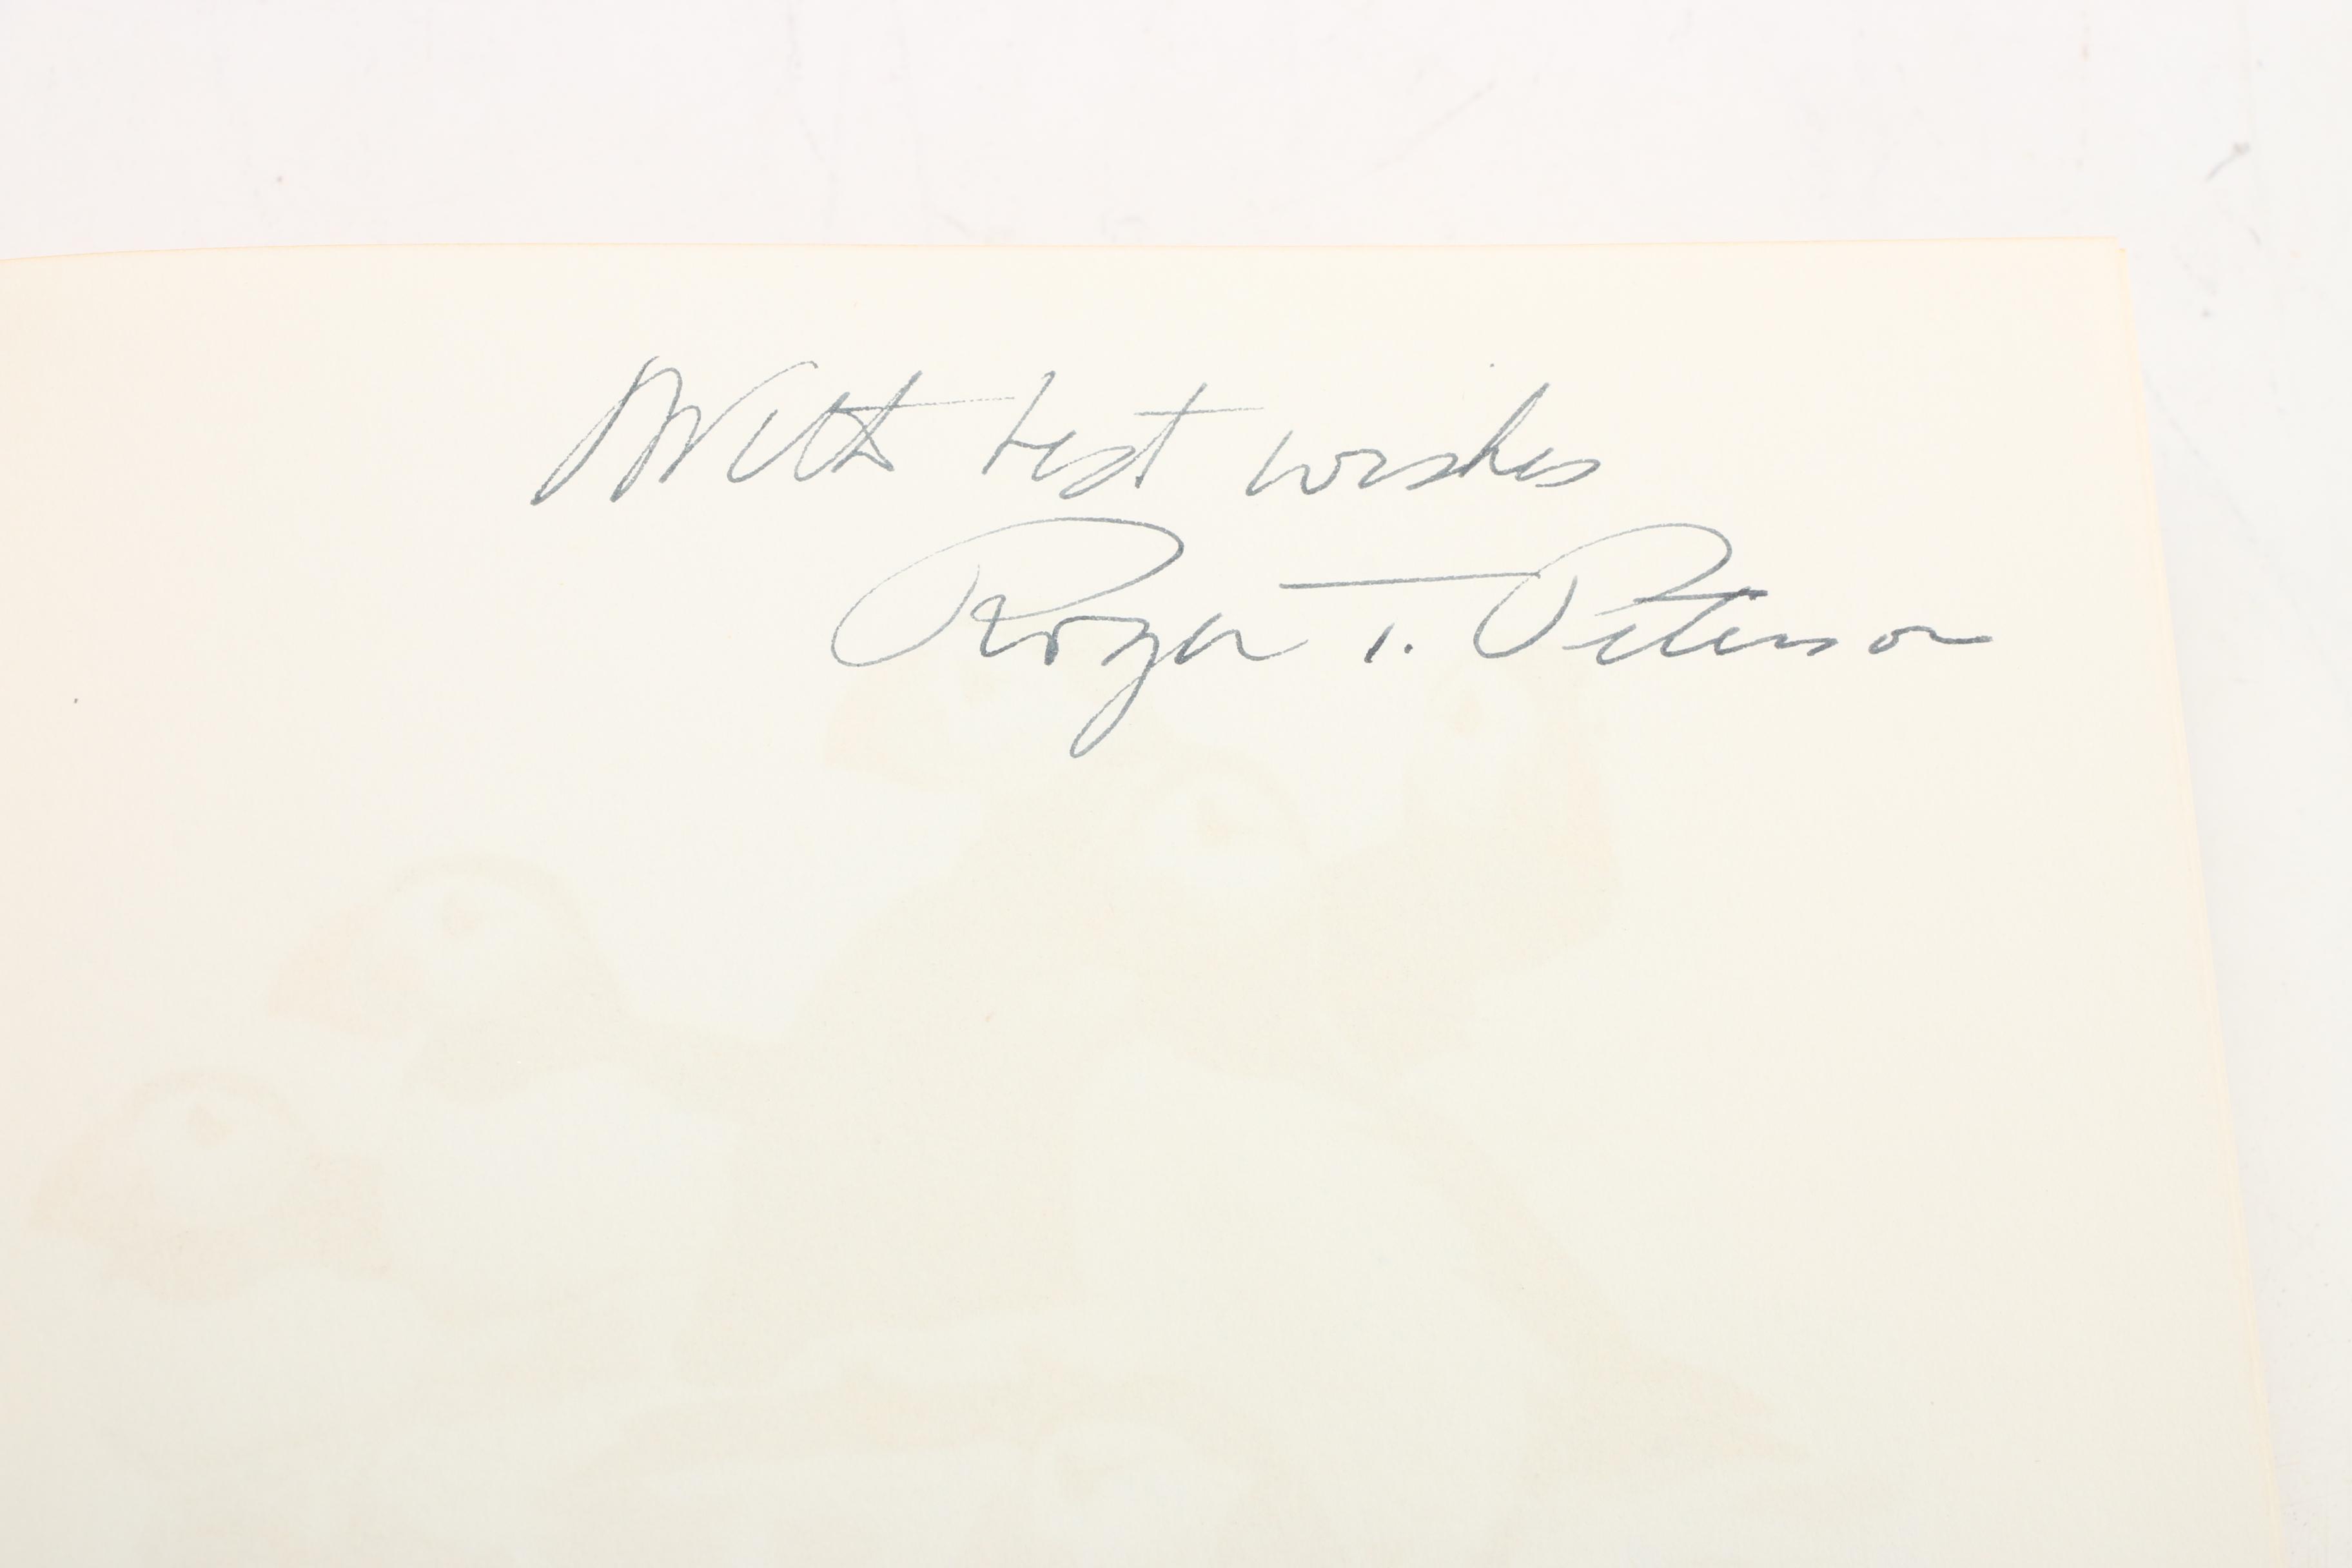 With best wishes
Roger T. Peterson